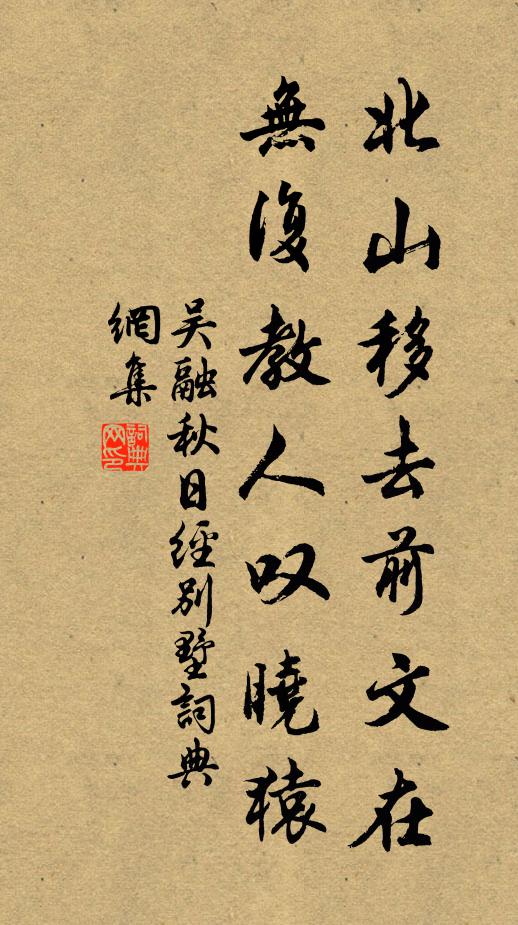 北山移去前文在
無復教人叹曉猿
吴融秋日經别墅詞典
網集
詞典網印